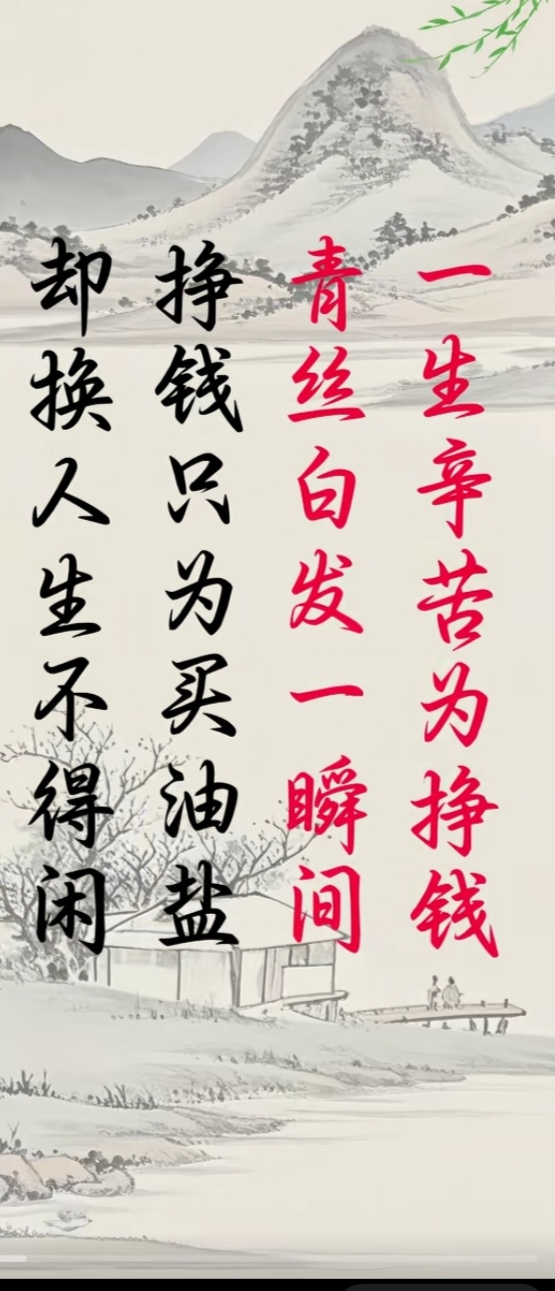 一生辛苦为挣钱
青丝白发一瞬间
挣钱只为买油盐
却换人生不得闲